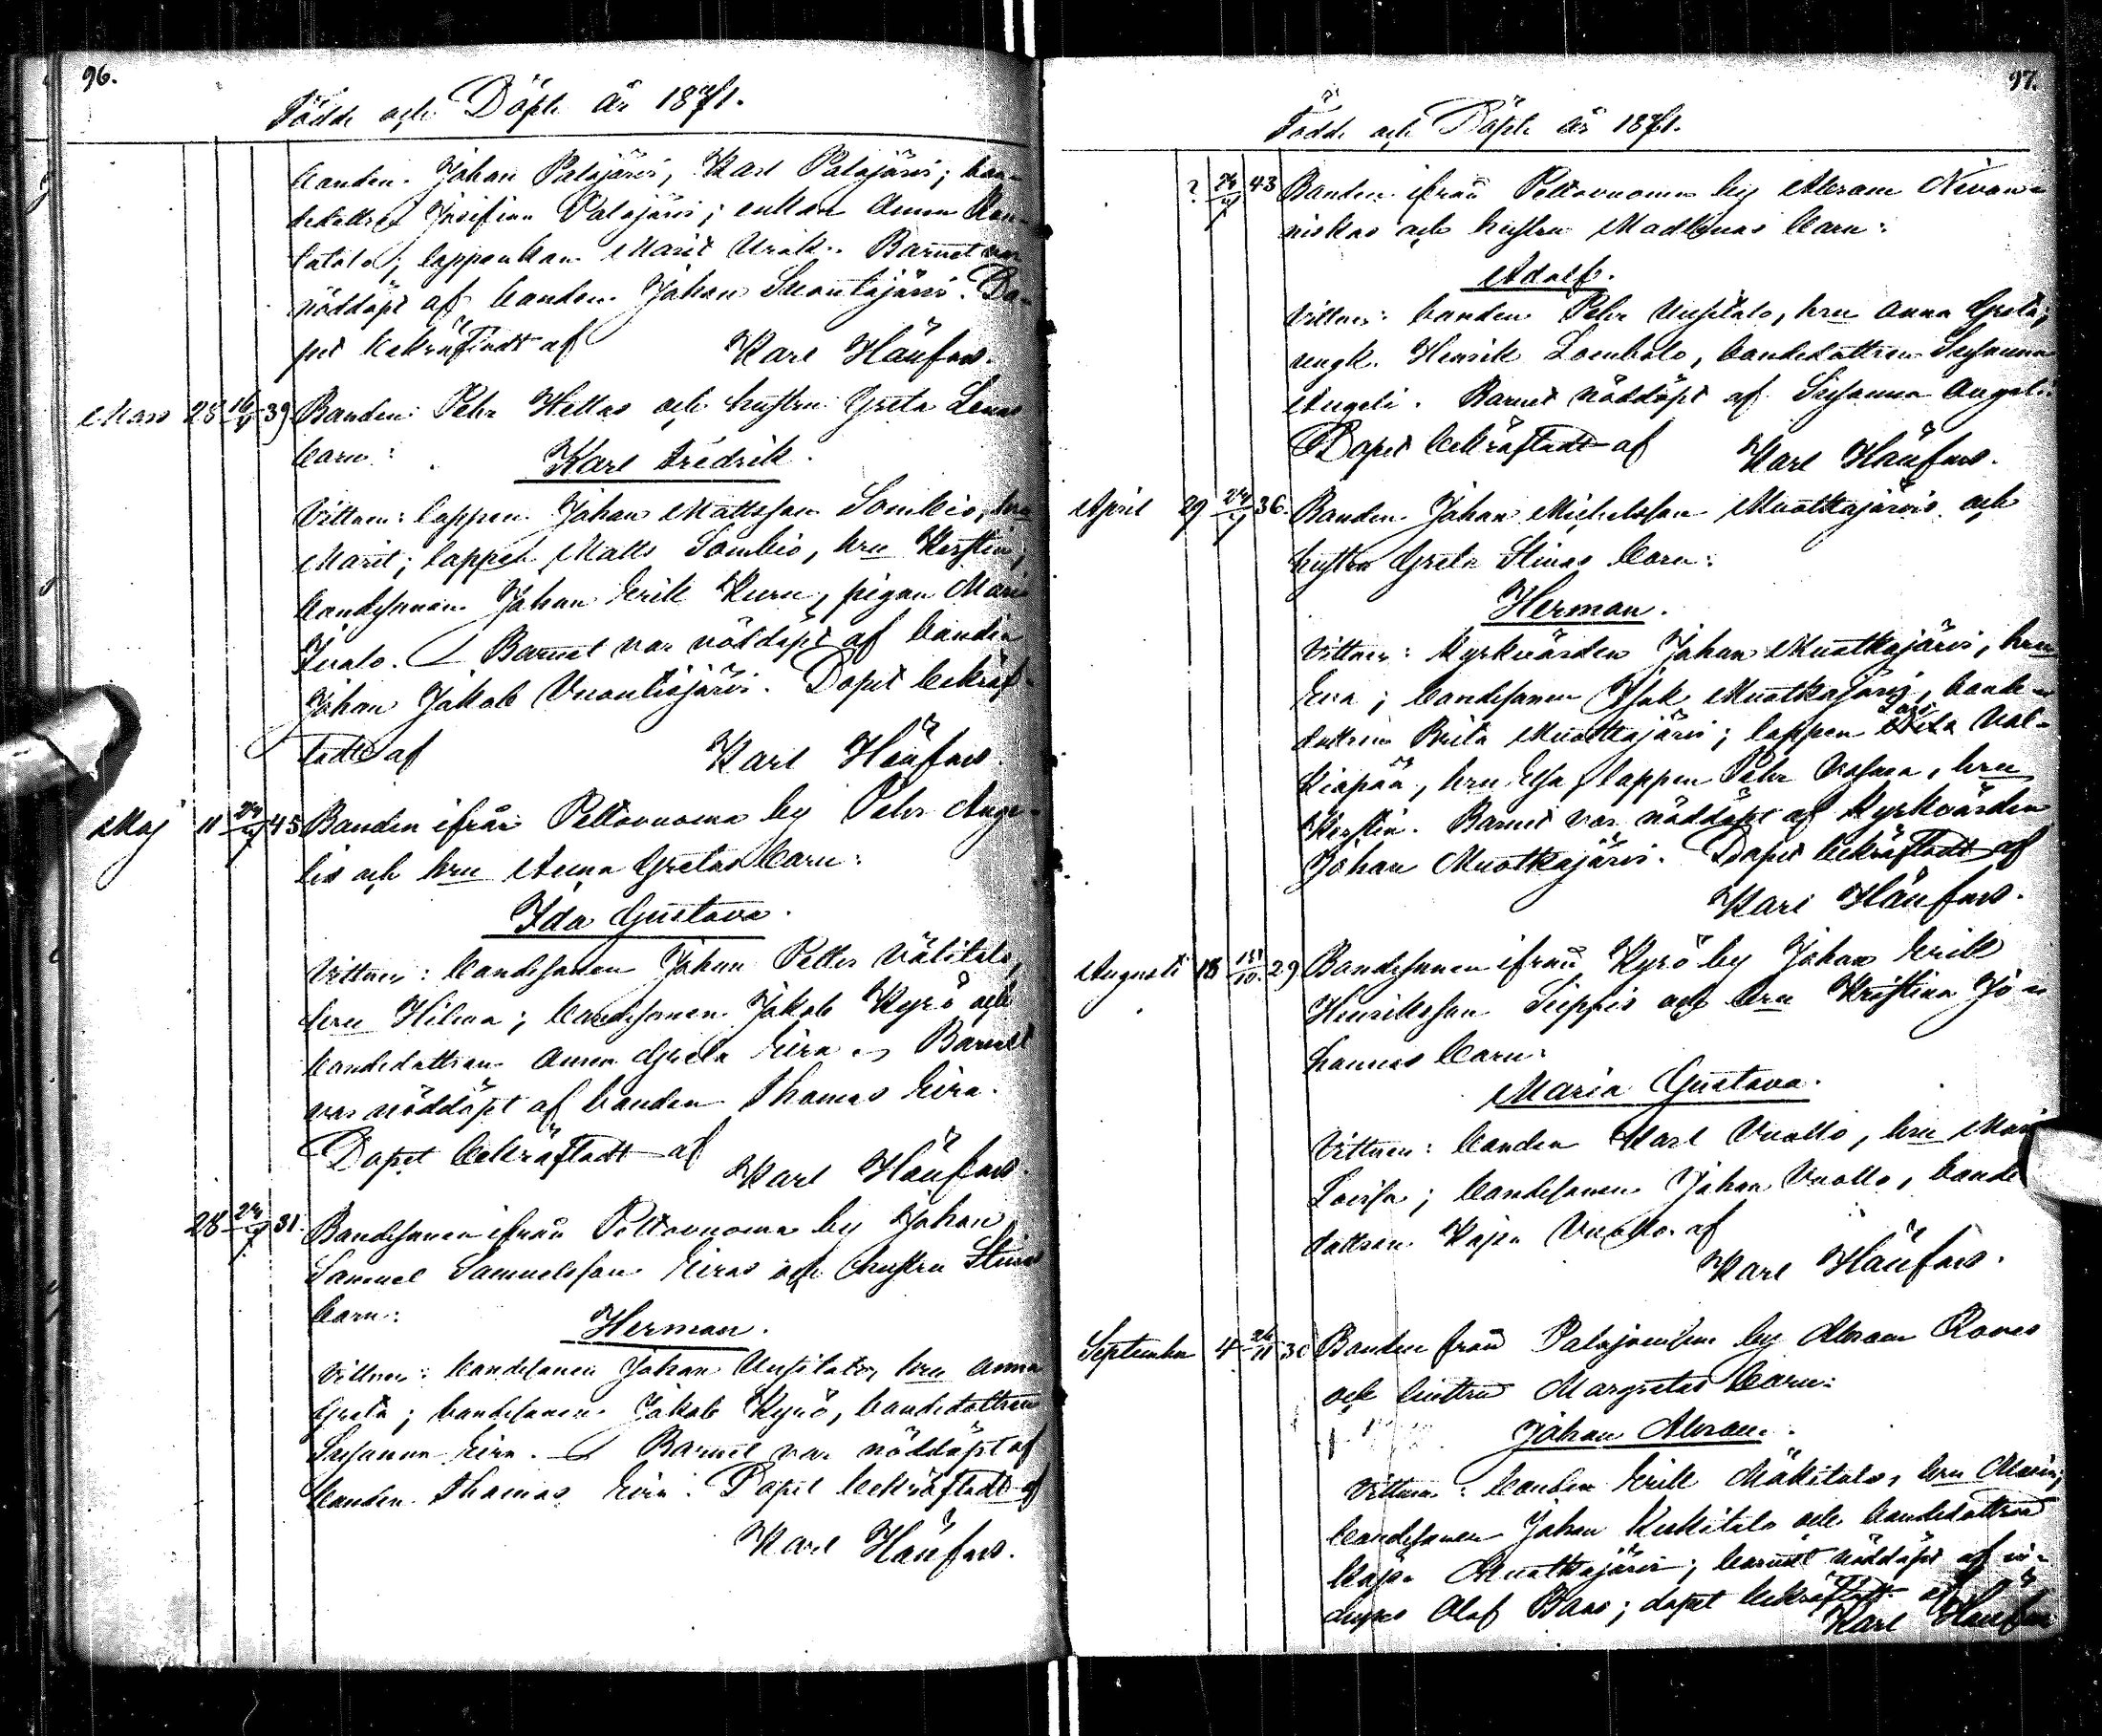 96.
Födde och Döpte år 1871.
banden Johan Palojärvi, Karl Palojärvi; bon-
dedottren Josefina Palojärvi; enkan Anna
lappenkan Marit. Barnet var
nöddöpt af banden Johan Suontajärvi. Do-
pet bekräftadt af
Karl Hänfors.
Mars 28 16/4 39 Bonden Pehr Hettas och hustru Greta Lenas
barn:
Karl Fredrik.
Vittnen: lappen Johan Mattsson Sombio, hru
Marit; lappen Matts Sombio, hru Kerstin;
bondesonen Johan Erik Kuru, pigan Maria
Barnet var nöddöpt af banden
Johan Jakob Vuontisjärvi. Dopet bekräf-
tadt af
Karl Hänfors.
Maj 11 24/ 45 Bonden ifrån Peltovuoma by Pehr Ange-
lis och hru Anna Gretas barn:
Ida Gustava.
Vittnen: bondesonen Johan Petter Välitalo,
hru Hilma; bondesonen Jakob Kyrö och
bondedottren Anna Greta Eira. Barnet
var nöddöpt af banden Thomas Eira.
Dopet bekräftadt af
Karl Hänfors.
28 24/ 31. Bondesonen ifrån Peltovuoma by Johan
Samuel Samuelsson Eiras och hustru Stinas
barn:
Herman.
Vittnen: bondesonen Johan Uusitalo, hru Anna
Greta; bondesonen Jakob Kyrö, bondedottren
Susanna Eira. Barnet var nöddöpt af
banden Thomas Eira. Dopet bekräftadt af
Karl Hänfors.
97.
Födde och Döpte år 1871.
? 24/ 43 Bonden ifrån Peltovuoma by Abram Nivan-
niskas och hustru Madlenas barn:
Adolf.
Vittnen: banden Pehr Uusitalo, hru Anna Greta;
ungk. Henrik Lombolo, bondedottren Susanna
Angeli. Barnet nöddöpt af Susanna Angeli.
Dopet bekräftadt af
Karl Hänfors.
April 29 24/ 36. Bonden Johan Michelsson Muotkajärvis och
hustru Greta Stinas barn:
Herman.
Vittnen: Kyrkvärden Johan Muotkajärvi, hru
Eva; bondesonen Isak Muotkajärvi, bonde-
dottren Brita Muotkajärvi; lappen Val-
kiapää, hru Elsa; lappen Pehr, hru
Kerstin. Barnet var nöddöpt af Kyrkvärden
Johan Muotkajärvi. Dopet bekräftadt af
Karl Hänfors.
Augusti 18 /10 29 Bondesonen ifrån Kyrö by Johan Erik
Henriksson Sieppis och hru Kristina Jo-
hannas barn:
Maria Gustava.
Vittnen: banden Karl Vuollo, hru Maria
Lovisa; bondesonen Johan Vuollo, bonde
dottren Kajsa Vuollo. af
Karl Hänfors.
September 4 26/11 30 Bonden från Palojoensuu by Abram Rovas
och hustru Margretas barn:
Johan Abram.
Vittnen: banden Erik Mäkitalo, hru Maria;
bondesonen Johan Keskitalo och bondedottren
Kajsa Muotkajärvi; barnet nöddöpt af in-
hyses Olof Baas; dopet bekräftadt af
Karl Hänfors